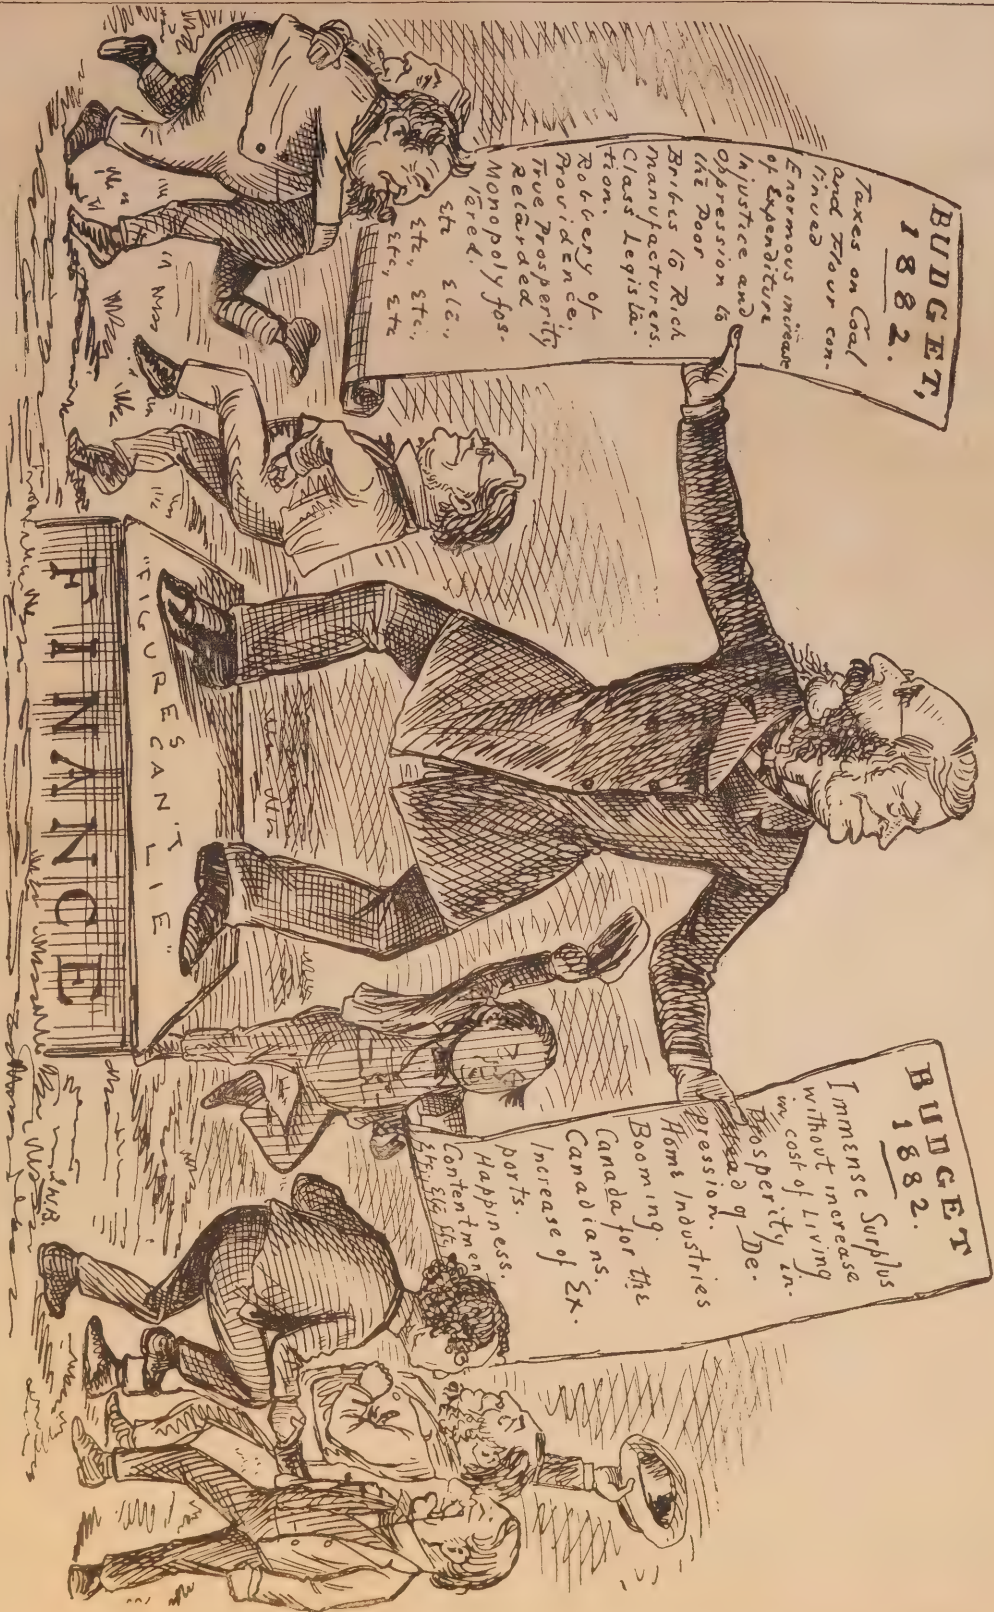 BUDGET,
1882.
Taxes on Coal
and Flour con-
tinued
Enormous increase
of Expenditure
Injustice and
oppression to
the Poor
Bribes to Rich
manufacturers.
Class Legisla-
tion.
Robbery of
Providence;
True Prosperity
Retarded
Monopoly fos-
tered.
Etc Etc.,
Etc., Etc.,
Etc, Etc
BUDGET
1882.
Immense Surplus
without increase
in cost of Living
Prosperity in-
stead of De-
pression.
Home Industries
Booming.
Canada for the
Canadians.
Increase of Ex-
ports.
Happiness.
Contentment
Etc, Etc, Etc.
"FIGURES CAN'T LIE"
FINANCE